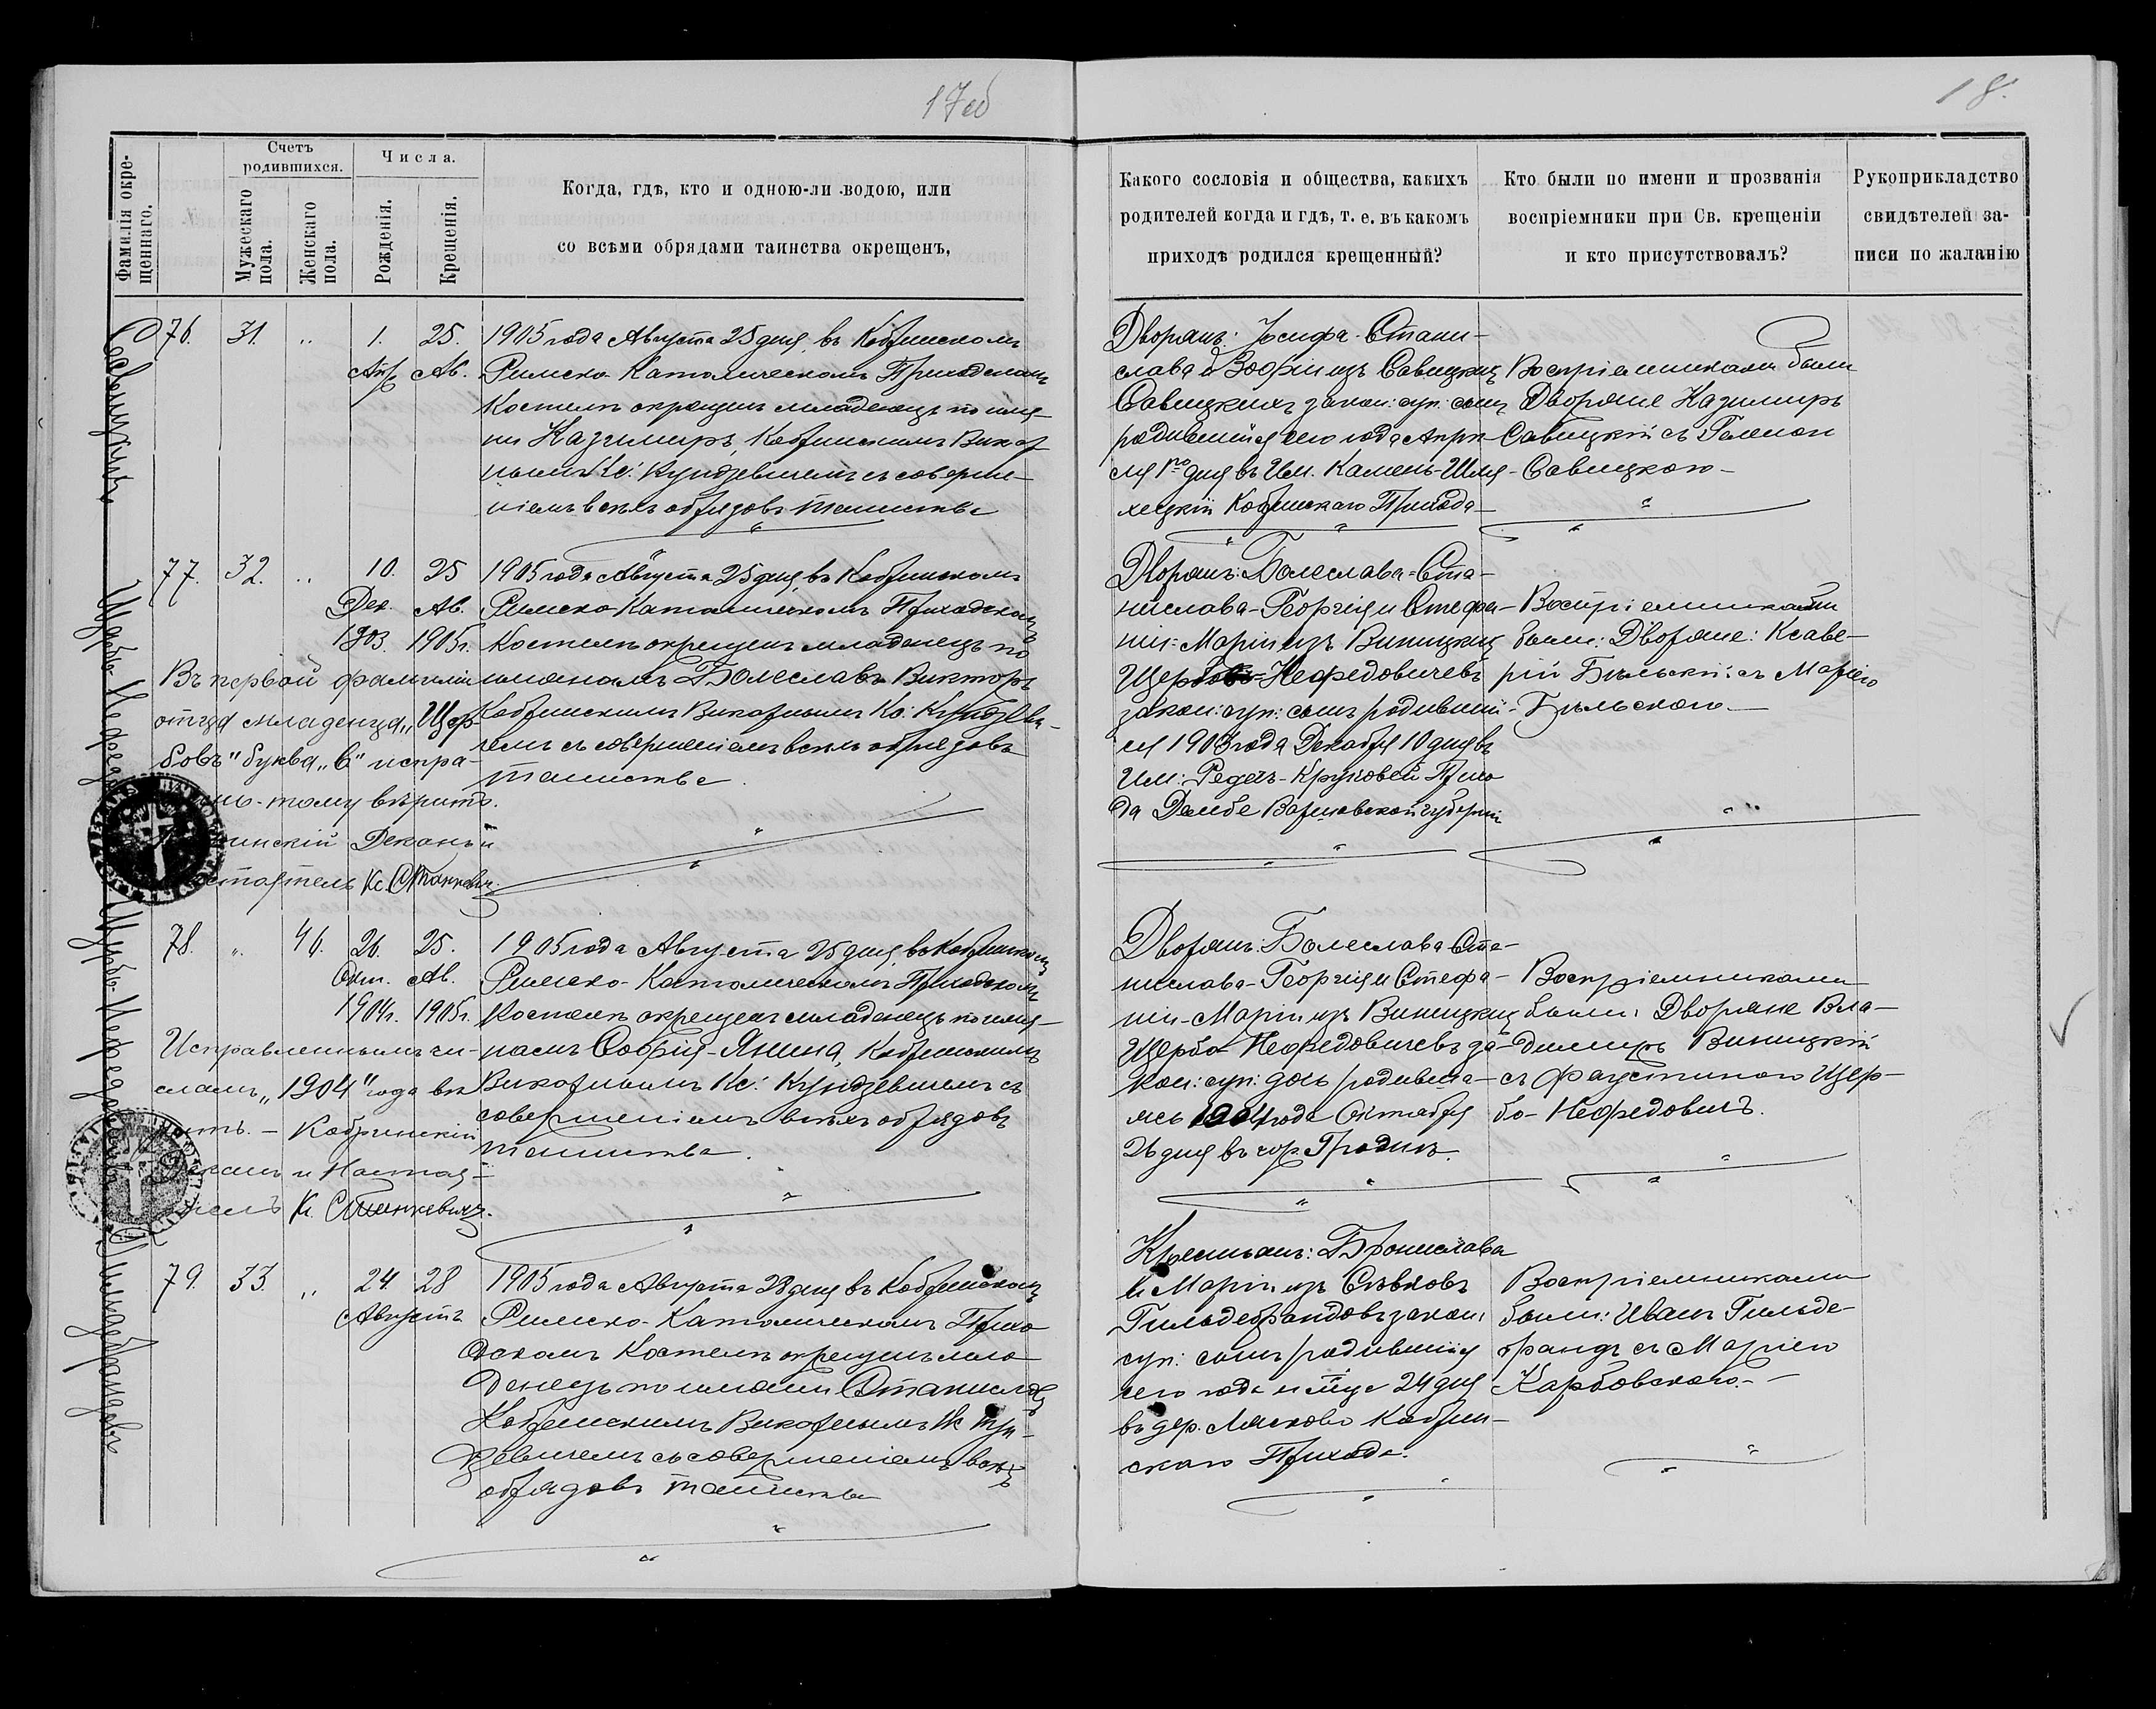 17об
18.
Фамилія окрещеннаго.
№.
Счетъ родившихся.
Мужескаго пола.
Женскаго пола.
Числа.
Рожденія.
Крещенія.
Когда, гдѣ, кто и одною-ли водою, или
со всѣми обрядами таинства окрещенъ,
Какого сословія и общества, какихъ
родителей когда и гдѣ, т. е. въ какомъ
приходѣ родился крещенный?
Кто были по имени и прозванія
воспріемники при Св. крещеніи
и кто присутствовалъ?
Рукоприкладство
свидѣтелей за-
писи по жаланію
Савицкихъ
76. 31. „ 1. 25.
Апр. Ав.
1905 года Августа 25 дня, въ Кобринскомъ
Римско-Католическомъ Приходскомъ
Костелѣ окрещенъ младенецъ по име-
ни Казимиръ, Кобринскимъ Викар
нымъ Кс: Кундзевичемъ съ соверше-
ніемъ всѣхъ обрядовъ таинства
Дворянъ: Іосифа-Стани-
слава и Зофіи изъ Савицкихъ
Савицкихъ закон: суп: сынъ
родившійся сего года Апрѣ-
ля 1го дня въ Им. Камень-Шля-
хецкій Кобринскаго Прихода
Воспріемниками были
Дворяне Казимиръ
Савицкій съ Геленою
Савицкою
Щербо-Нефедовичевъ
77. 32. „ 10. 25
Дек. Ав.
1903. 1905г.
1905 года Августа 25 дня, въ Кобринскомъ
Римско-Католическомъ Приходскомъ
Костелѣ окрещенъ младенецъ по
именамъ Болеславъ Викторъ
Кобринскимъ Викарнымъ Кс: Кундзеви-
чемъ съ совершеніемъ всѣхъ обрядовъ
таинства.
Въ первой фамиліи
отца младенца „Щер-
бовъ" буква „в" испра-
но-тому вѣрить.
инскій Деканъ и
стоятель Кс. Станкевич
Дворянъ: Болеслава-Ста-
нислава-Георгія и Стефа-
ніи-Маріи изъ Виницкихъ
Щербовъ-Нефедовичевъ
закон: суп: сынъ родивший-
ся 1903 года Декабря 10 дня въ
Им: Редечь-Круковой Прихо
да Дембе Варшавской губерніи
Воспріемниками
были: Дворяне: Ксаве-
рій Бѣльскій съ Маріею
Бѣльскою.
Щербо-Нефедовичевъ
78. „ 46. 26. 25.
Окт. Ав.
1904г. 1905г.
1905 года Августа 25 дня, въ Кобринскомъ
Римско-Католическомъ Приходскомъ
Костелѣ окрещенъ младенецъ по име-
намъ Софія-Янина, Кобринскимъ
Викарнымъ Кс: Кундзевичемъ съ
совершеніемъ всѣхъ обрядовъ
таинства.
Исправленнымъ чи-
сламъ „1904" года вѣ
рить. — Кобринскій
Деканъ и Настоя-
тель К. Станкевич.
Дворянъ: Болеслава Ста-
нислава-Георгія и Стефа-
ніи-Маріи изъ Виницкихъ
Щербо Нефедовичевъ за-
кон: суп: дочь родивша-
яся 1904 года Октября
26 дня въ гор. Гродно.
Воспріемниками
были: Дворяне Вла-
димиръ Виницкій
съ Фаустиною Щер-
бо-Нефедовичъ.
Гильдебрандовъ
79. 33. „ 24. 28
Августъ
1905 года Августа 28 дня въ Кобринскомъ
Римско-Католическомъ Прихо
дскомъ Костелѣ окрещенъ мла
денецъ по имени Станиславъ
Кобринскимъ Викарнымъ Кс Кун-
дзевичемъ съ совершеніемъ всѣхъ
обрядовъ таинства
Крестьянъ: Бронислава
и Маріи изъ Сѣвковъ
Гильдебрандовъ закон:
суп: сынъ родившійся
сего года и м-ца 24 дня
въ дер. Лясково Кобрин-
скаго Прихода.
Воспріемниками
были: Иванъ Гильде-
брандъ съ Маріею
Карбовскою.